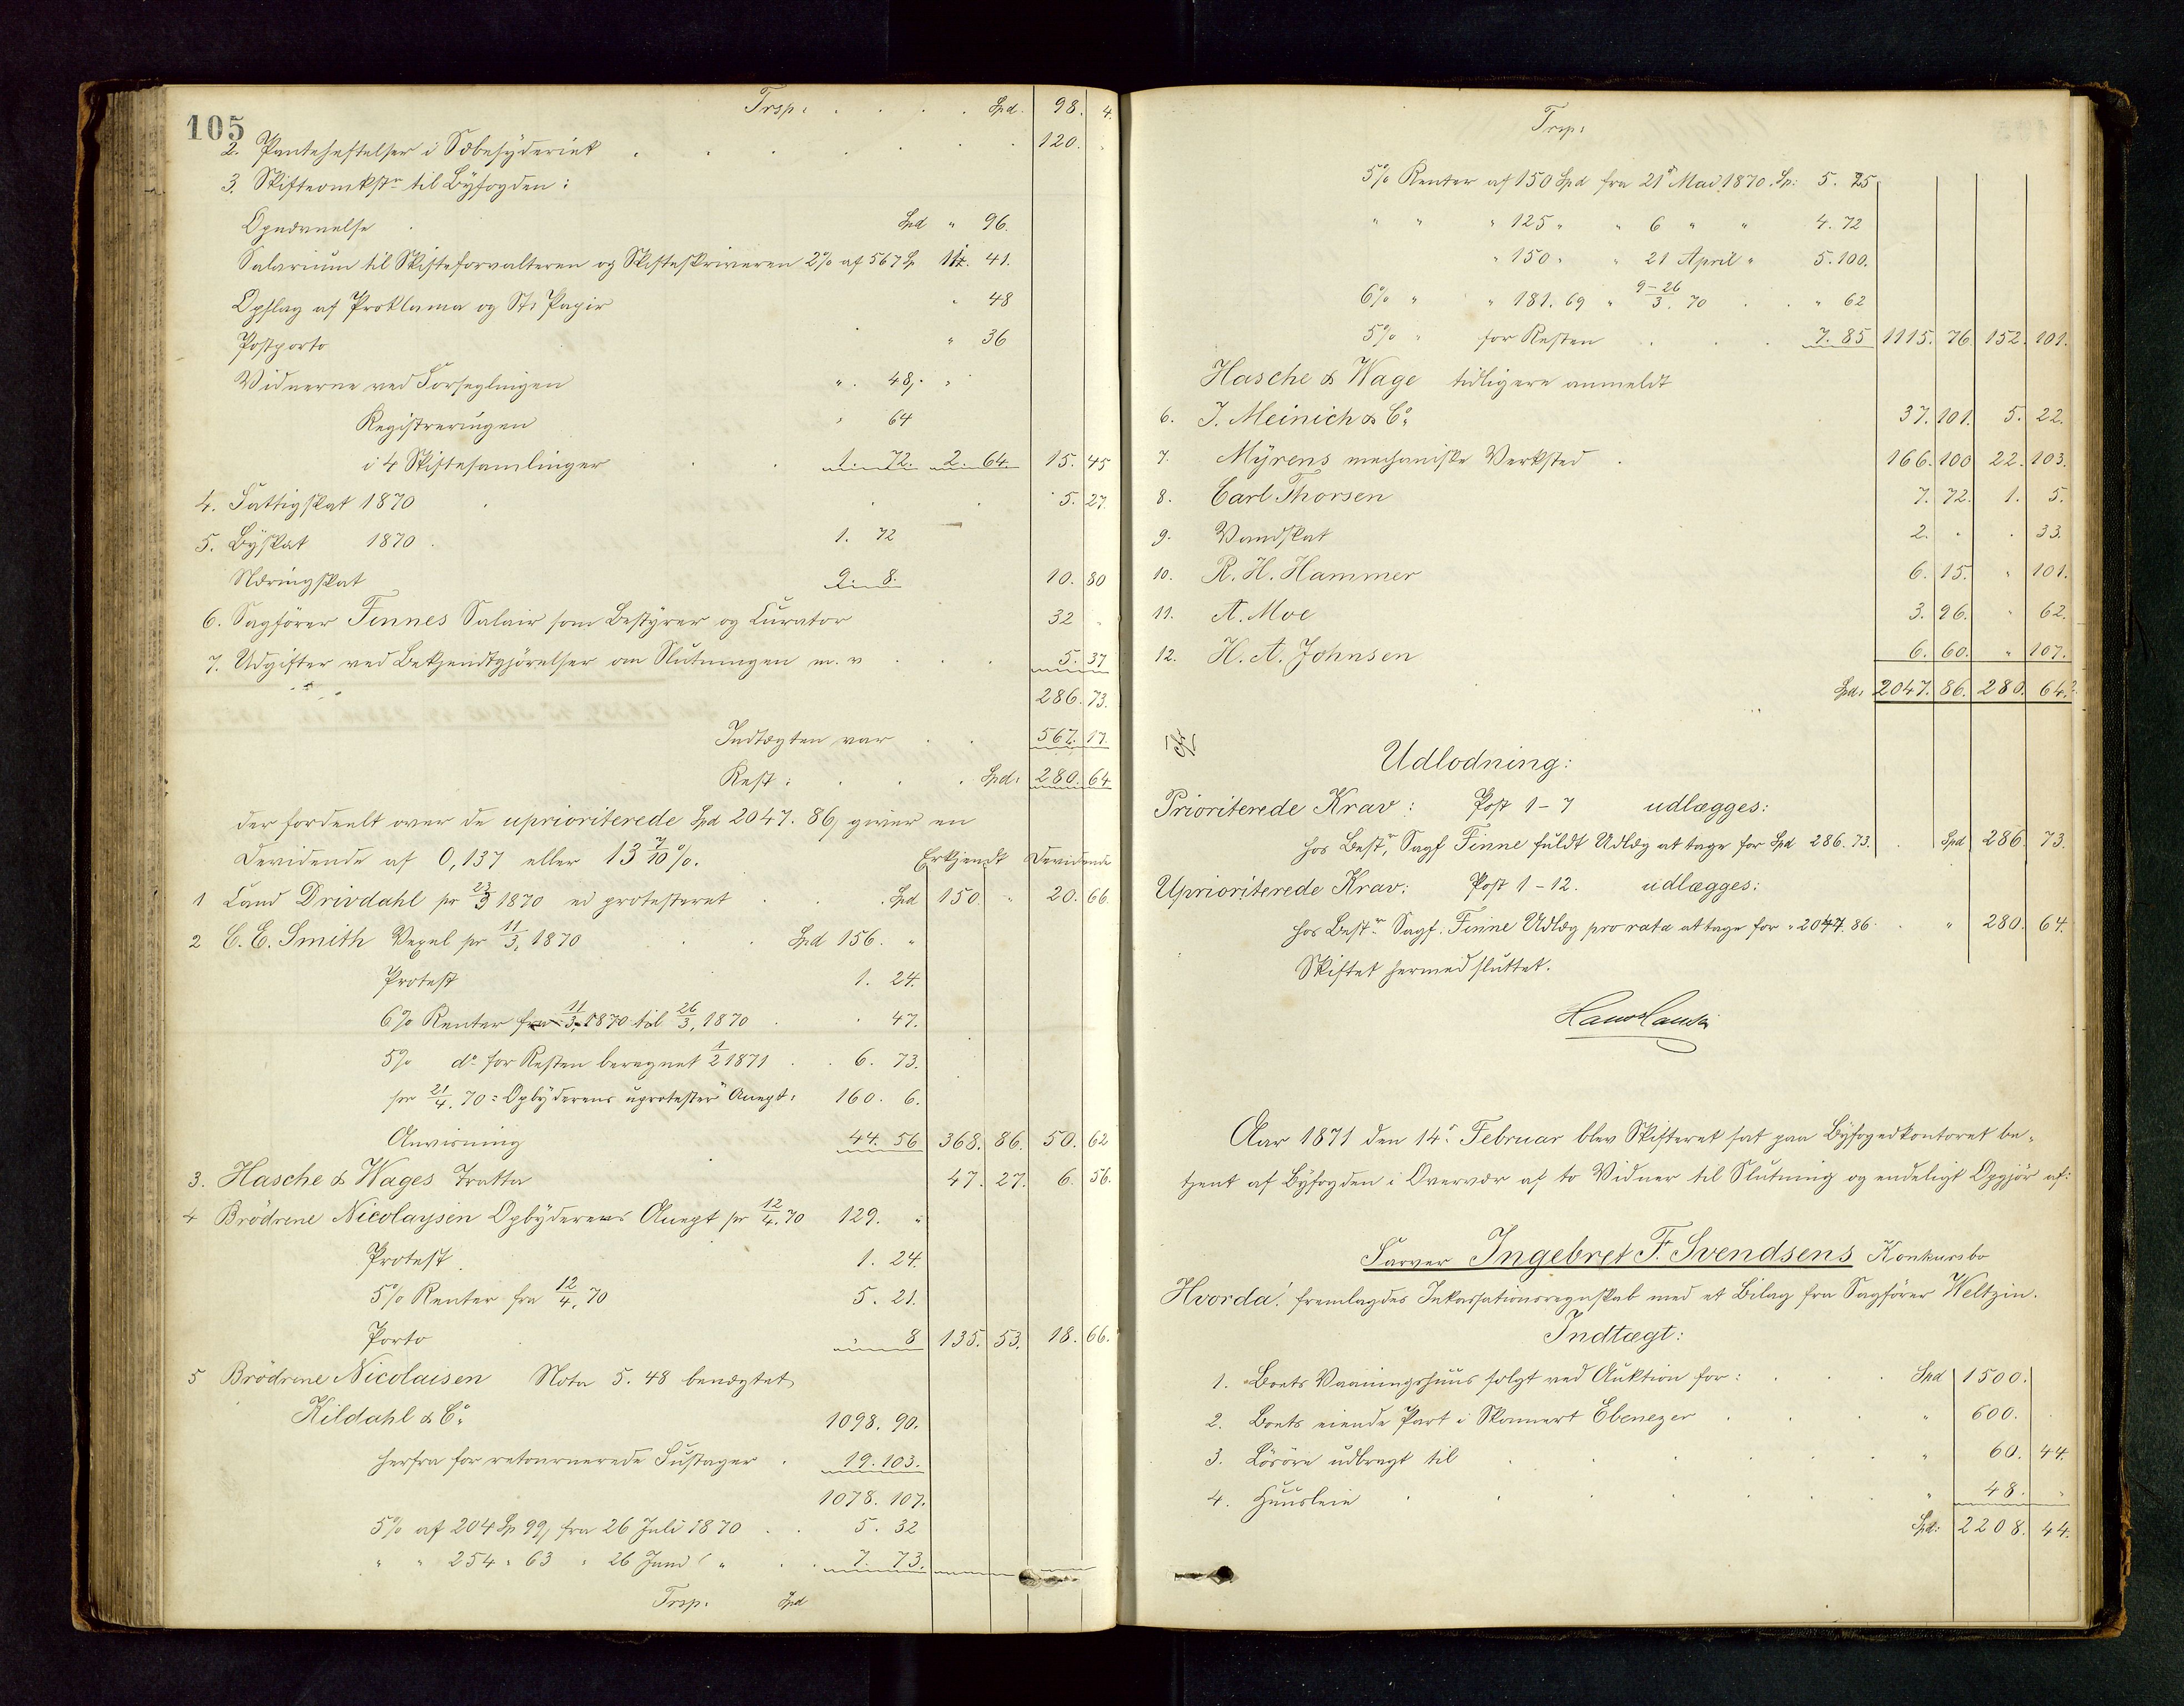 105
Trsp: . . . . Spd. 98. 4.
2. Panteheftelser i Sæbesyderiet . . . . . . 120. .
3. Skifteomkstn til Byfogden:
Opnævnelse . Spd " 96.
Salarium til Skifteforvalteren og Skifteskriveren 2% af 567 Sp 11. 41.
Opslag af Proklama og St: Papir " 48
Postporto " 36
Vidnerne ved Forseglingen ". 48. "
Registreringen " 64
i 4 Skiftesamlinger . . 1. 72. 2. 64. 15. 45
4. Fattigskat 1870 . . . 5. 27.
5. Byskat 1870 . 1. 72
Næringskat 9. 8. 10. 80
6. Sagförer Finnes Salair som Bestyrer og Curator 32 .
7. Udgifter ved Bekjendtgjörelser om Slutningen m. v . . . 5. 37
286. 73.
Indtægten var . . 567. 17.
Rest: . . . Spd: 280. 64
der fordeelt over de uprioriterede Spd 2047. 86, giver en
Devidende af 0,137 eller 13 7/10 %. Erkjendt Devidende
1 Cand Drivdahl pr 23/3 1870 ei protesteret . . . Spd 150. " 20. 66.
2 C. E. Smith Vexel pr 11/3, 1870 . . Spd 156. "
Protest 1. 24.
6% Renter fra 11/3, 1870 til 26/3, 1870 . . 47.
5% do for Resten beregnet 1/2 1871 . . 6. 73.
pr 21/4. 70 = Opbyderens uprotester Accept: 160. 6.
Anvisning 44. 56 368. 86. 50. 62
3. Hasche & Wages Tratta 47. 27. 6. 56.
4 Brödrene Nicolaysen Opbyderens Accept pr 12/4. 70 129. "
Protest . 1. 24.
5% Renter fra 12/4, 70 5. 21.
Porto " 8 135. 53. 18. 66.
5 Brödrene Nicolaisen Nota 5. 48 benægtet
Kildahl & Co: 1098. 90.
herfra for retournerede Fustager . 19. 103.
1078. 107.
5% af 204 Sp 99, fra 26 Juli 1870 . . 5. 32
" " 254 " 63 " 26 Juni " . . 7. 73.
Trsp. Spd
Trsp:
5% Renter af 150 Spd fra 21s Mai 1870. Sp: 5. 25
" " " 125 " " 6 " " 4. 72
" 150 " " 21 April " 5. 100.
6% " " 181. 69 " 9-26/3. 70 . . " 62
5% " for Resten . . . 7. 85 1115. 76. 152. 101.
Hasche & Wage tidligere anmeldt
6. J. Meinich & Co: 37. 101. 5. 22.
7. Myrens mechaniske Verksted . 166. 100 22. 103.
8. Carl Thorsen 7. 72. 1. 5.
9. Vandskat 2. . . 33.
10. R. H. Hammer 6. 15. " 101.
11. A. Moe 3. 96. " 62.
12. H. A. Johnsen 6. 60. " 107.
Spd: 2047. 86. 280. 64.
Udlodning:
Prioriterede Krav: Post 1-7 udlægges:
hos Bestr, Sagf Finne fuldt Udlæg at tage for Spd 286. 73. . Spd 286. 73.
Uprioriterede Krav: Post 1-12. udlægges:
hos Bestr Sagf. Finne Udlæg pro rata at tage for " 2047. 86. . " 280. 64.
Skiftet hermed sluttet.
Aar 1871 den 14s Februar blev Skifteret sat paa Byfogedkontoret be-
tjent af Byfogden i Overvær af to Vidner til Slutning og endeligt Opgjör af:
Farver Ingebret F. Svendsens Konkursbo
Hvorda: fremlagdes Inkassationsregnskab med et Bilag fra Sagförer Weltzin.
Indtægt:
1. Boets Vaaningshuus solgt ved Auktion for: . . . Spd 1500.
2. Boets eiende Part i Skonnert Ebenezer . . . " 600. .
3. Lösöre udbragt til . . . . . " 60. 44.
4. Huusleie . . . . . . " 48. "
Spd: 2208. 44.